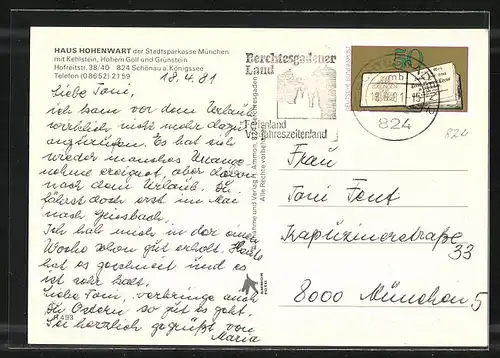 HAUS HOHENWART der Stadtsparkasse München
mit Kehlstein, Hohem Göll und Grünstein
Hofreitstr. 38/40 824 Schönau a. Königssee
Telefon (08652) 2159
18.4.81
Liebe Toni,
ich kam vor dem Urlaub
wirklich nicht mehr dazu
anzurufen. Es hat sich
wieder manches Unange-
nehme ereignet, aber davon
nach dem Urlaub. Du
fährst doch erst im Mai
nach
Ich hab mich in der einen
Woche schon gut erholt. Heute
hat es geschneit und es
ist sehr kalt.
Liebe Toni, verbringe auch
Du Ostern so gut es geht.
Sei herzlich gegrüßt von
Maria
493
Alle Rechte vorbehalten
Berchtesgadener
Land
Ferienland
Vierjahreszeitenland
50
DEUTSCHE BUNDESPOST
824
824
Frau
Toni Fent
Kapuzinerstraße
33
8000 München 5